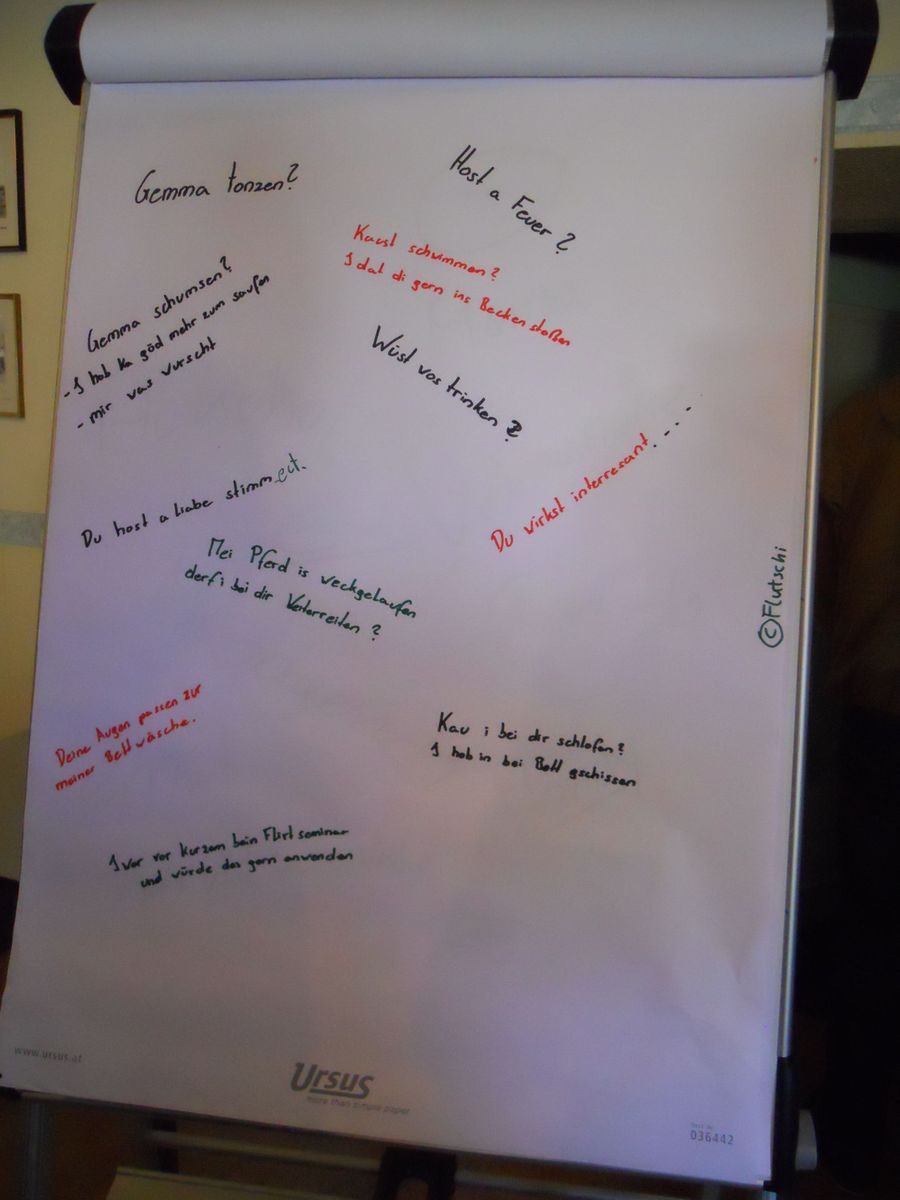 Gemma tanzen?
Host a Feuer?
Kaust schwimmen?
I dat di gern ins Becken stoßen
Gemma schumsen?
- I hob ka göd mehr zum saufen
- mir was wurscht
Wüst wos trinken?
Du wirkst interresant....
Du host a liabe stimm.
Mei Pferd is weckgelaufen
derf i bei dir Weiterreiten?
©Flutschi
Deine Augen passen zur
meiner Bettwäsche.
Kau i bei dir schlofen?
I hob in bei Bett gschissen
I wor vor kurzem bein Flirtseminar
und würde das gern anwenden
www.ursus.at
Ursus
more than simple paper
D36442